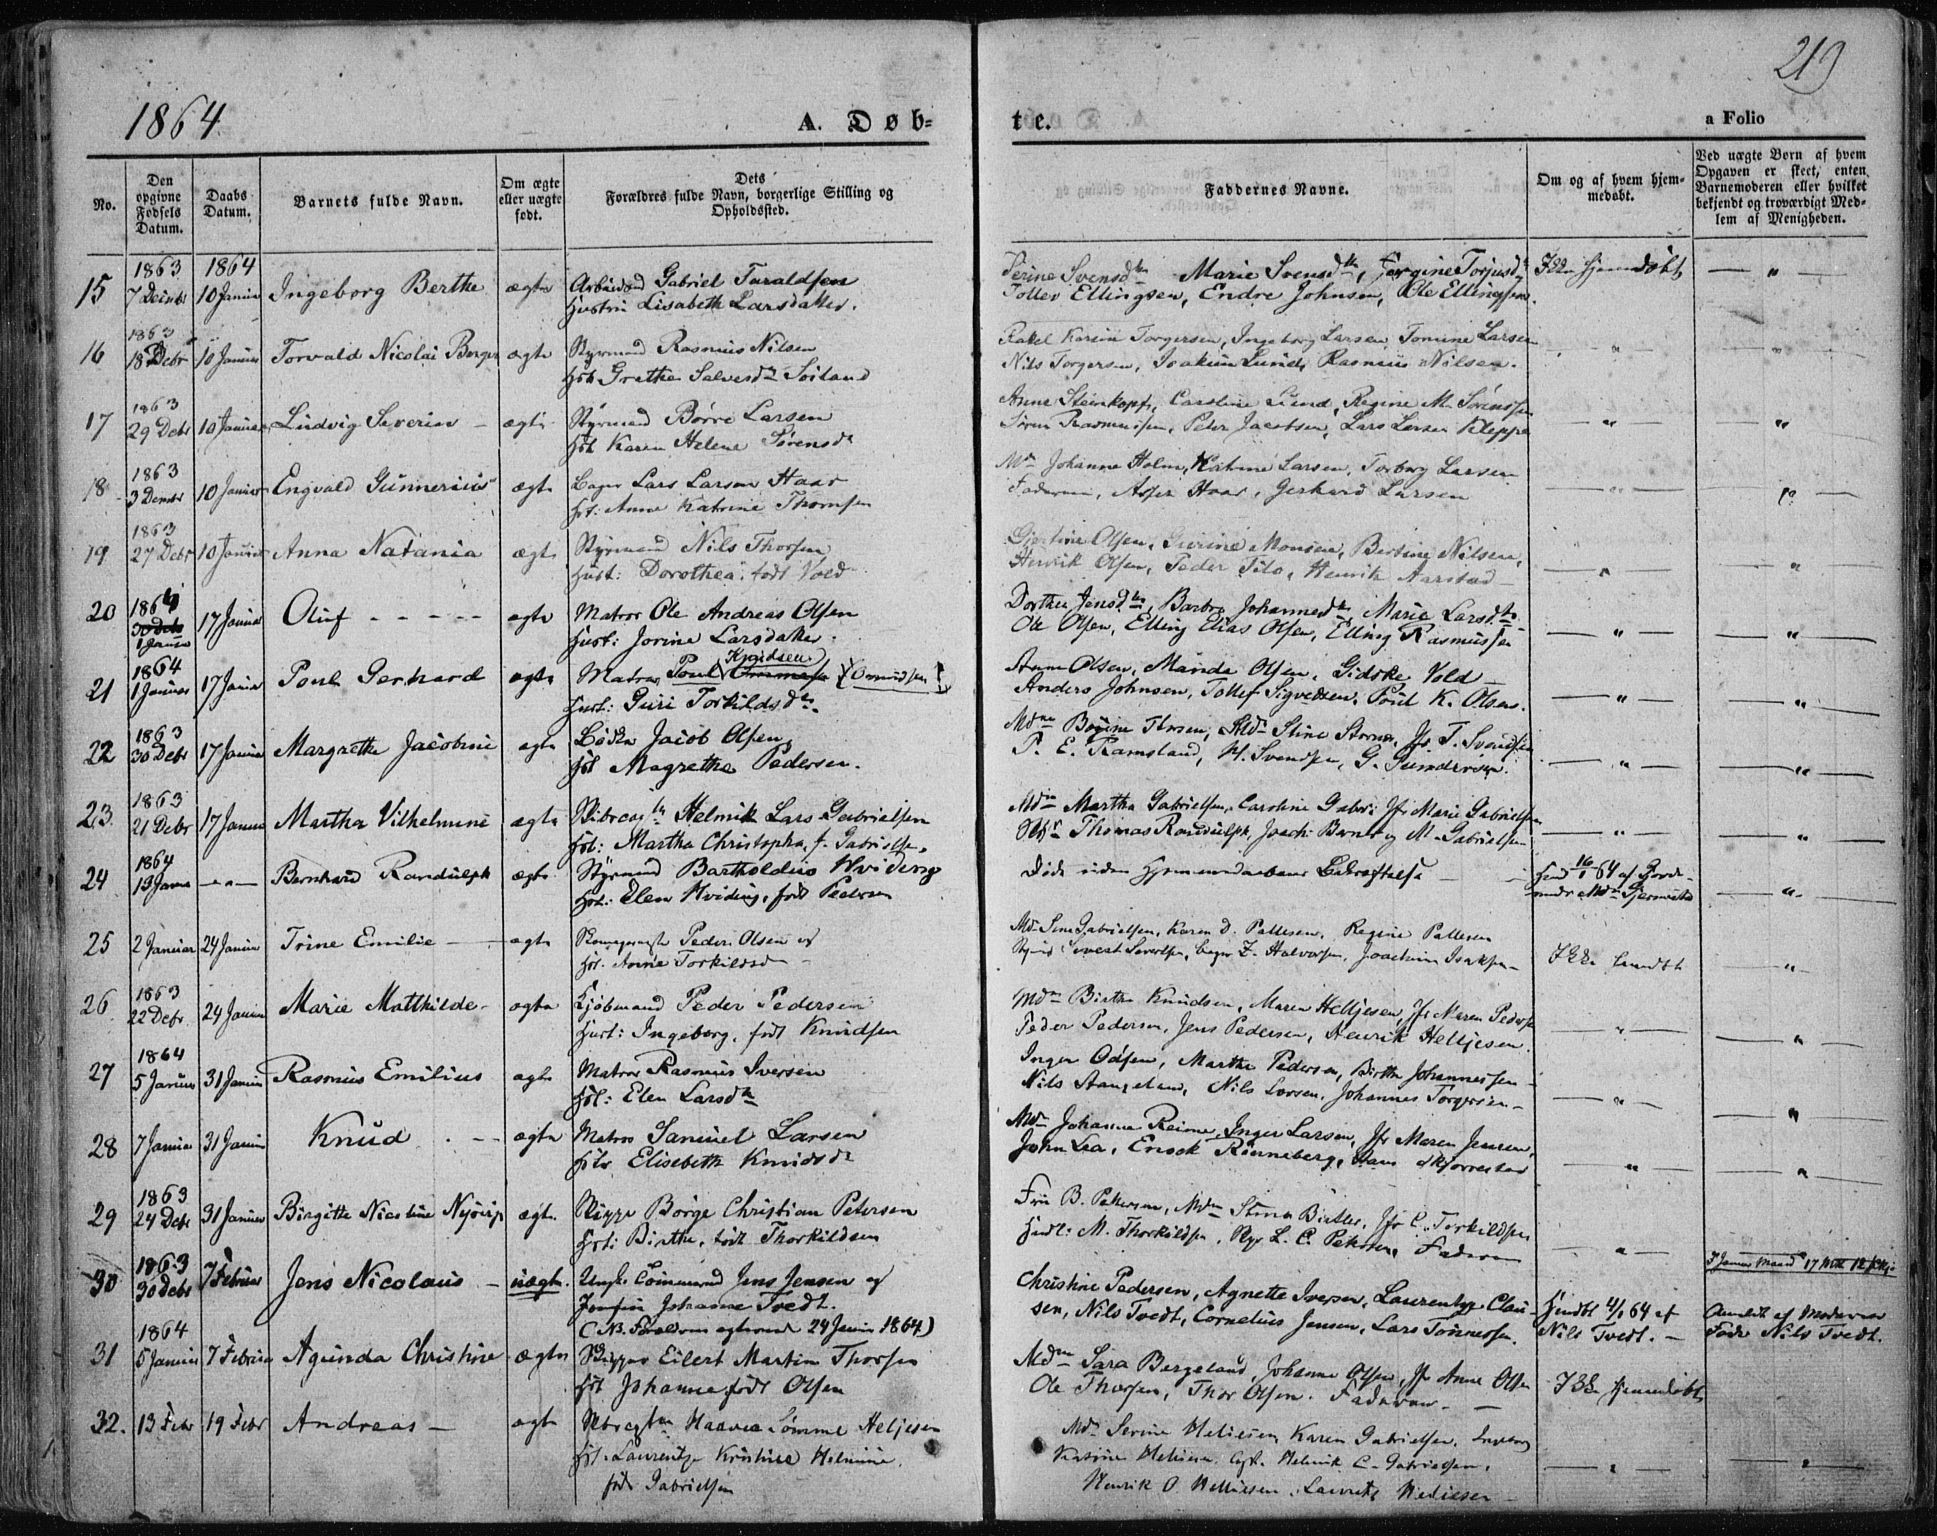 219
1864.
A. Døb=
te.
a Folio
No.
Den opgivne Fødsels Datum.
Daabs Datum.
Barnets fulde Navn.
Om ægte eller uægte født.
Dets
Forældres fulde Navn, borgerlige Stilling og
Opholdssted.
Faddernes Navne.
Om og af hvem hjem-
medøbt.
Ved uægte Børn af hvem
Opgaven er skeet, enten
Barnemoderen eller hvilket
bekjendt og troværdigt Med-
lem af Menigheden.
1863 1864
15 7 10 Januar Ingeborg Berthe ægte Gabriel Taraldsen
Lisabeth Larsdatter.
Serine Svensd Marie Svensd, Torjusd
Tollev Ellingsen, Endre Johnsen, Ole Ellingsen.
Ikke hjemdøbt
1863
16 18 Debr 10 Januar Torvald Nicolai Berger ægte Styrmand Rasmus Nilsen
Grethe Salvesd Soiland
Rakel Karin Torgersen, Ingeborg Larsen, Tomine Larsen
Nils Torgersen, Joakim Lund, Rasmus Nilsen.
1863
17 29 Debr 10 Januar Ludvig Severin ægte Styrmand Børre Larsen
Karen Helene Sørensd
Anne Steinkopf, Caroline Lund, Regine M. Sørensen
Søren Rasmussen, Peter Jacobsen, Lars Larsen Kleppe
1863
18 3 10 Januar Engvald Gunnerius ægte Lars Larsen Haar
Hst: Anne Katrine Thomsen
Johanne Holm, Katrine Larsen, Torborg Larsen
Faderen, Haar, Gerhard Larsen
1863
19 27 Debr 10 Januar Anna Natania ægte Styrmand Nils Thorsen
Hust: Dorothea, født Vold
Olsen, Monsen, Bertine Nilsen,
Henrik Olsen, Peder Tilo, Henrik Aarstad
1864
20 30 Debr 17 Januar Oluf ægte Matros Ole Andreas Olsen
1 Januar Hust: Jorine Larsdatter.
Dorthea Jensd, Barbro Johannesd, Marie Larsd
Ole Olsen, Elling Elias Olsen, Elling Rasmussen
1864
21 1 Januar 17 Januar Poul Gerhard ægte Matros Poul Knudsen (Omundsen)
Hust: Guri Torkildsd.
Anne Olsen, Manda Olsen, Gidske Vold
Anders Johnsen, Tollef Sigvedsen, Poul K. Olsen.
1863
22 30 Debr 17 Januar Margrethe Jacobine ægte Bødker Jacob Olsen
Magrethe Pedersen.
Stine Storm, Jfr T. Svendsen
P. E. Ramsland, H. Svendsen, G. Gundersen.
1863
23. 21 Debr 17 Januar Martha Vilhelmine ægte Helmik Lars Gabrielsen
Hst: Martha Christopha, f. Gabrielsen.
Martha Gabrielsen, Caroline Gabr: Jfr Marie Gabrielsen
Thomas Randulph, Joach: Berner og M. Gabrielsen
1864
24 13 Januar Bernhard Randulph ægte Styrmand Bartholdus Hviding
Hst: Elen Hviding, født Pedersen
Døde uden Hjemmedaabens Bekræftelse
16/1 64 af Jorde-
moder
25 2 Januar 24 Januar Trine Emilie ægte Peder Olsen og
Hst. Anne Torkildsd
Gabrielsen, Karen D. Pallesen, Regine Pallesen
Sivert Sivertsen, Z. Halvorsen, Joachim Isaksen
Ikke hjemdbt
1863
26 22 Debr 24 Januar Marie Matthilde ægte Kjøbmand Peder Pedersen
Hust: Ingeborg, født Knudsen
Birthe Knudsen, Maren Helljesen, Jfr Maren Pedersen
Peder Pedersen, Jens Pedersen, Henrik Helljesen.
1864
27 5 Januar 31 Januar Rasmus Emilius ægte Matros Rasmus Iversen
Hst: Elen Larsd
Inger Odsen, Marthe Pedersen, Birthe Johannessen
Nils Stangeland, Nils Larsen, Johannes Torgersen
28 7 Januar 31 Januar Knud ægte Matros Samuel Larsen
Elisebeth Knudsd
Johanne Reime, Inger Larsen, Jfr Maren Jensen,
John Lea, Enock Rønneberg, Hans Skjorrestad
1863
29 24 Debr 31 Januar Birgitte Nicoline Nyörup ægte. Børge Christian Petersen
Hst: Birthe, født Thorkildsen
Fru B. Petersen, Stina Bietler, Jfr C. Torkildsen
M. Thorkildsen, L. C. Petersen, Faderen
1863
30 30 Debr 7 Februar Jens Nicolaus uægte. Ungk. Tømmermand Jens Jensen og
Jomfru Johanne Tvedt.
(NB. Forældrene ægteviet 24 Januar 1864)
Christine Pedersen, Agnette Iversen, Laurentze Clau-
sen, Nils Tvedt, Cornelius Jensen, Lars Tønnessen.
4/1 64 af
Nils Tvedt.
Anmeldt af Moderens
Fader Nils Tvedt.
1864
31 5 Januar 7 Februar Agunda Christine ægte Skipper Eilert Martin Thorsen
Hst Johanne født Olsen
Sara Bergeland, Johanne Olsen, Jfr Anne Olsen
Ole Thorsen, Thor Olsen. Faderen
Ikke hjemdøbt
32. 13 Febr 19 Febr Andreas ægte Haaver Sømme Heljesen
Hst. Laurentze Kristine Helmine,
født Gabrielsen
Serine Heliesen, Karen Gabrielsen.
Katrine Heliesen, Helmik C. Gabrielsen,
Henrik O. Helliesen. Laurits Heliesen